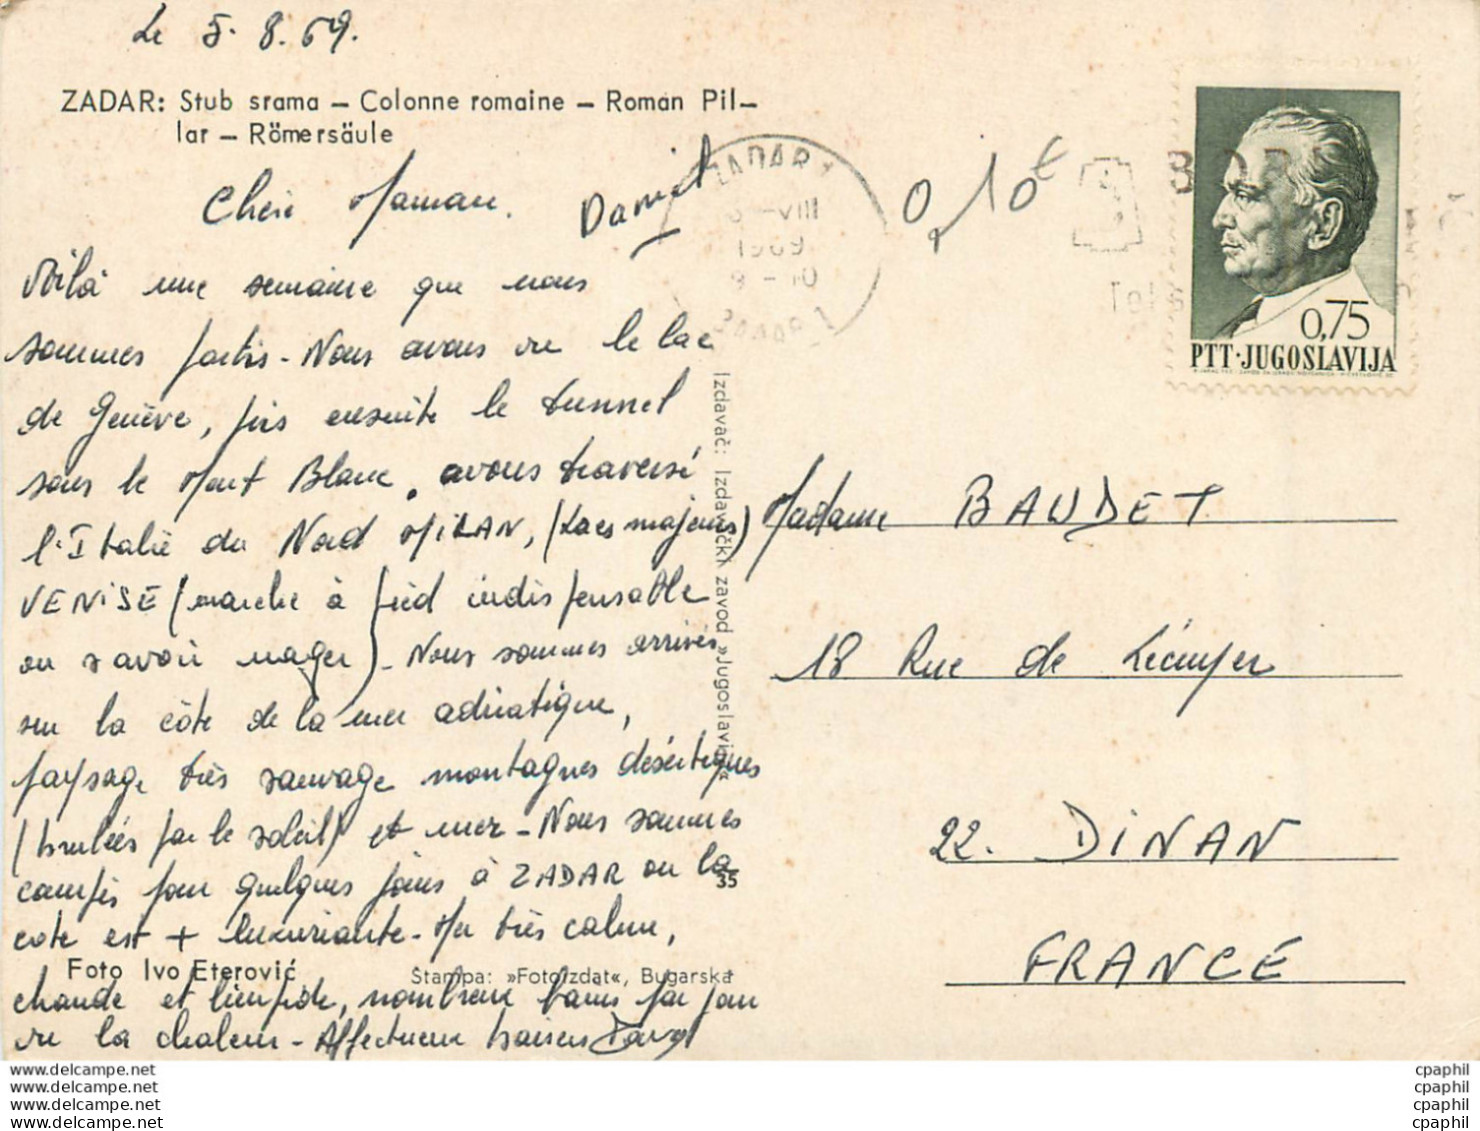 Le 5.8.69.
ZADAR: Stub srama – Colonne romaine – Roman Pil–
lar – Römersäule
Chère Maman.
Daniel
ZADAR 1
VIII
1969
ZADAR 1
0,10€
0,75
PTT·JUGOSLAVIJA
Voilà une semaine que nous
sommes partis - Nous avons vu le lac
de Genève, pris ensuite le tunnel
sous le Mont Blanc, avons traversé
l'Italie du Nord MILAN, (Lacs majeurs)
VENISE (marche à pied indispensable
ou savoir nager) - Nous sommes arrivés
sur la côte de la mer adriatique,
paysage très sauvage montagnes désertiques
(brulées par le soleil) et mer - Nous sommes
campés pour quelques jours à ZADAR ou la
cote est + luxuriante - Mer très calme,
chaude et limpide, nombreux bains par jour
vu la chaleur - Affectueux baisers Daniel
Izdavač: Izdavački zavod »Jugoslavija«
35
Foto Ivo Eterović
Štampa: »Fotoizdat«, Bugarska
Madame BAUDET
18 Rue de Léhon
22. DINAN
FRANCE
www.delcampe.net
www.delcampe.net
www.delcampe.net
www.delcampe.net
cpaphil
cpaphil
cpaphil
cpaphil